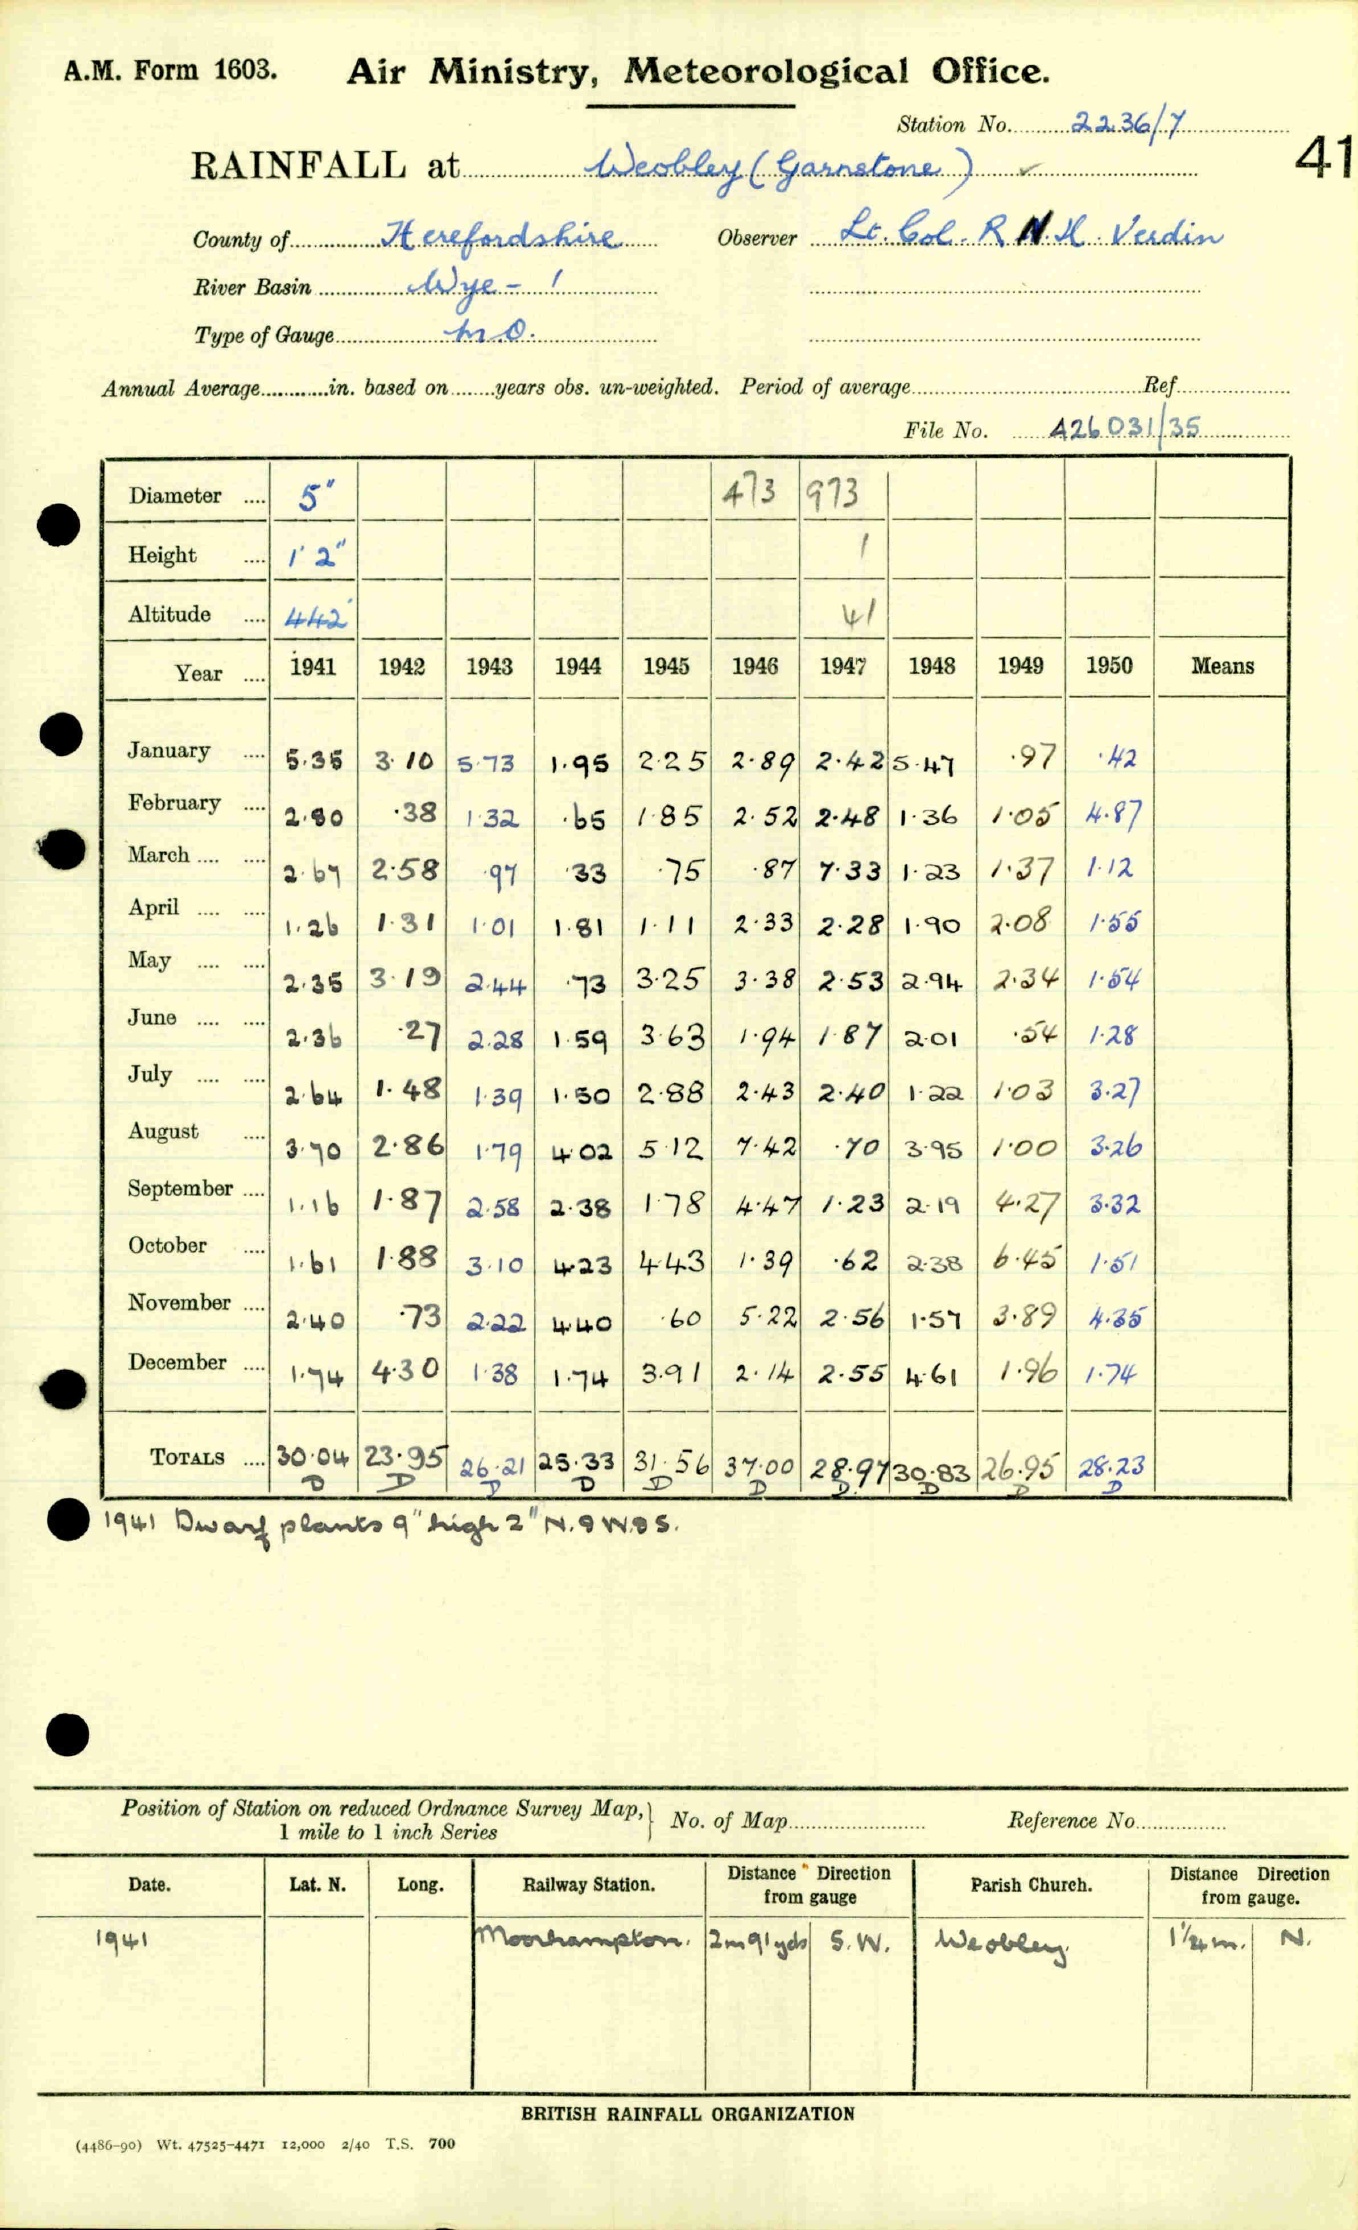 A.M. Form 1603. Air Ministry, Meteorological Office.
Station No. 2236/7
RAINFALL at Weobley (Garnstone) ✓ 41
County of Herefordshire Observer Lt. Col. R N. H. Verdin
River Basin Wye - 1
Type of Gauge M.O.
Annual Average............in. based on........years obs. un-weighted. Period of average............Ref............
File No. A26031/35
Diameter .... 5" 473 973
Height .... 1' 2" 1
Altitude .... 442' 41
Year .... 1941 1942 1943 1944 1945 1946 1947 1948 1949 1950 Means
January .... 5.35 3.10 5.73 1.95 2.25 2.89 2.42 5.47 .97 .42
February .... 2.80 .38 1.32 .65 1.85 2.52 2.48 1.36 1.05 4.87
March .... .... 2.67 2.58 .97 .33 .75 .87 7.33 1.23 1.37 1.12
April .... .... 1.26 1.31 1.01 1.81 1.11 2.33 2.28 1.90 2.08 1.55
May .... .... 2.35 3.19 2.44 .73 3.25 3.38 2.53 2.94 2.34 1.54
June .... .... 2.36 .27 2.28 1.59 3.63 1.94 1.87 2.01 .54 1.28
July .... .... 2.64 1.48 1.39 1.50 2.88 2.43 2.40 1.22 1.03 3.27
August .... 3.70 2.86 1.79 4.02 5.12 7.42 .70 3.95 1.00 3.26
September .... 1.16 1.87 2.58 2.38 1.78 4.47 1.23 2.19 4.27 3.32
October .... 1.61 1.88 3.10 4.23 4.43 1.39 .62 2.38 6.45 1.51
November .... 2.40 .73 2.22 4.40 .60 5.22 2.56 1.57 3.89 4.35
December .... 1.74 4.30 1.38 1.74 3.91 2.14 2.55 4.61 1.96 1.74
TOTALS .... 30.04 23.95 26.21 25.33 31.56 37.00 28.97 30.83 26.95 28.23
D D D D D D D D D D
1941 Dwarf plants 9" high 2" N. & W. & S.
Position of Station on reduced Ordnance Survey Map,} No. of Map............ Reference No............
1 mile to 1 inch Series
Date. Lat. N. Long. Railway Station. Distance Direction from gauge Parish Church. Distance Direction from gauge.
1941 Moorhampton. 2m 91 yds S.W. Weobley. 1¼ m. N.
BRITISH RAINFALL ORGANIZATION
(4486-90) Wt. 47525-4471 12,000 2/40 T.S. 700